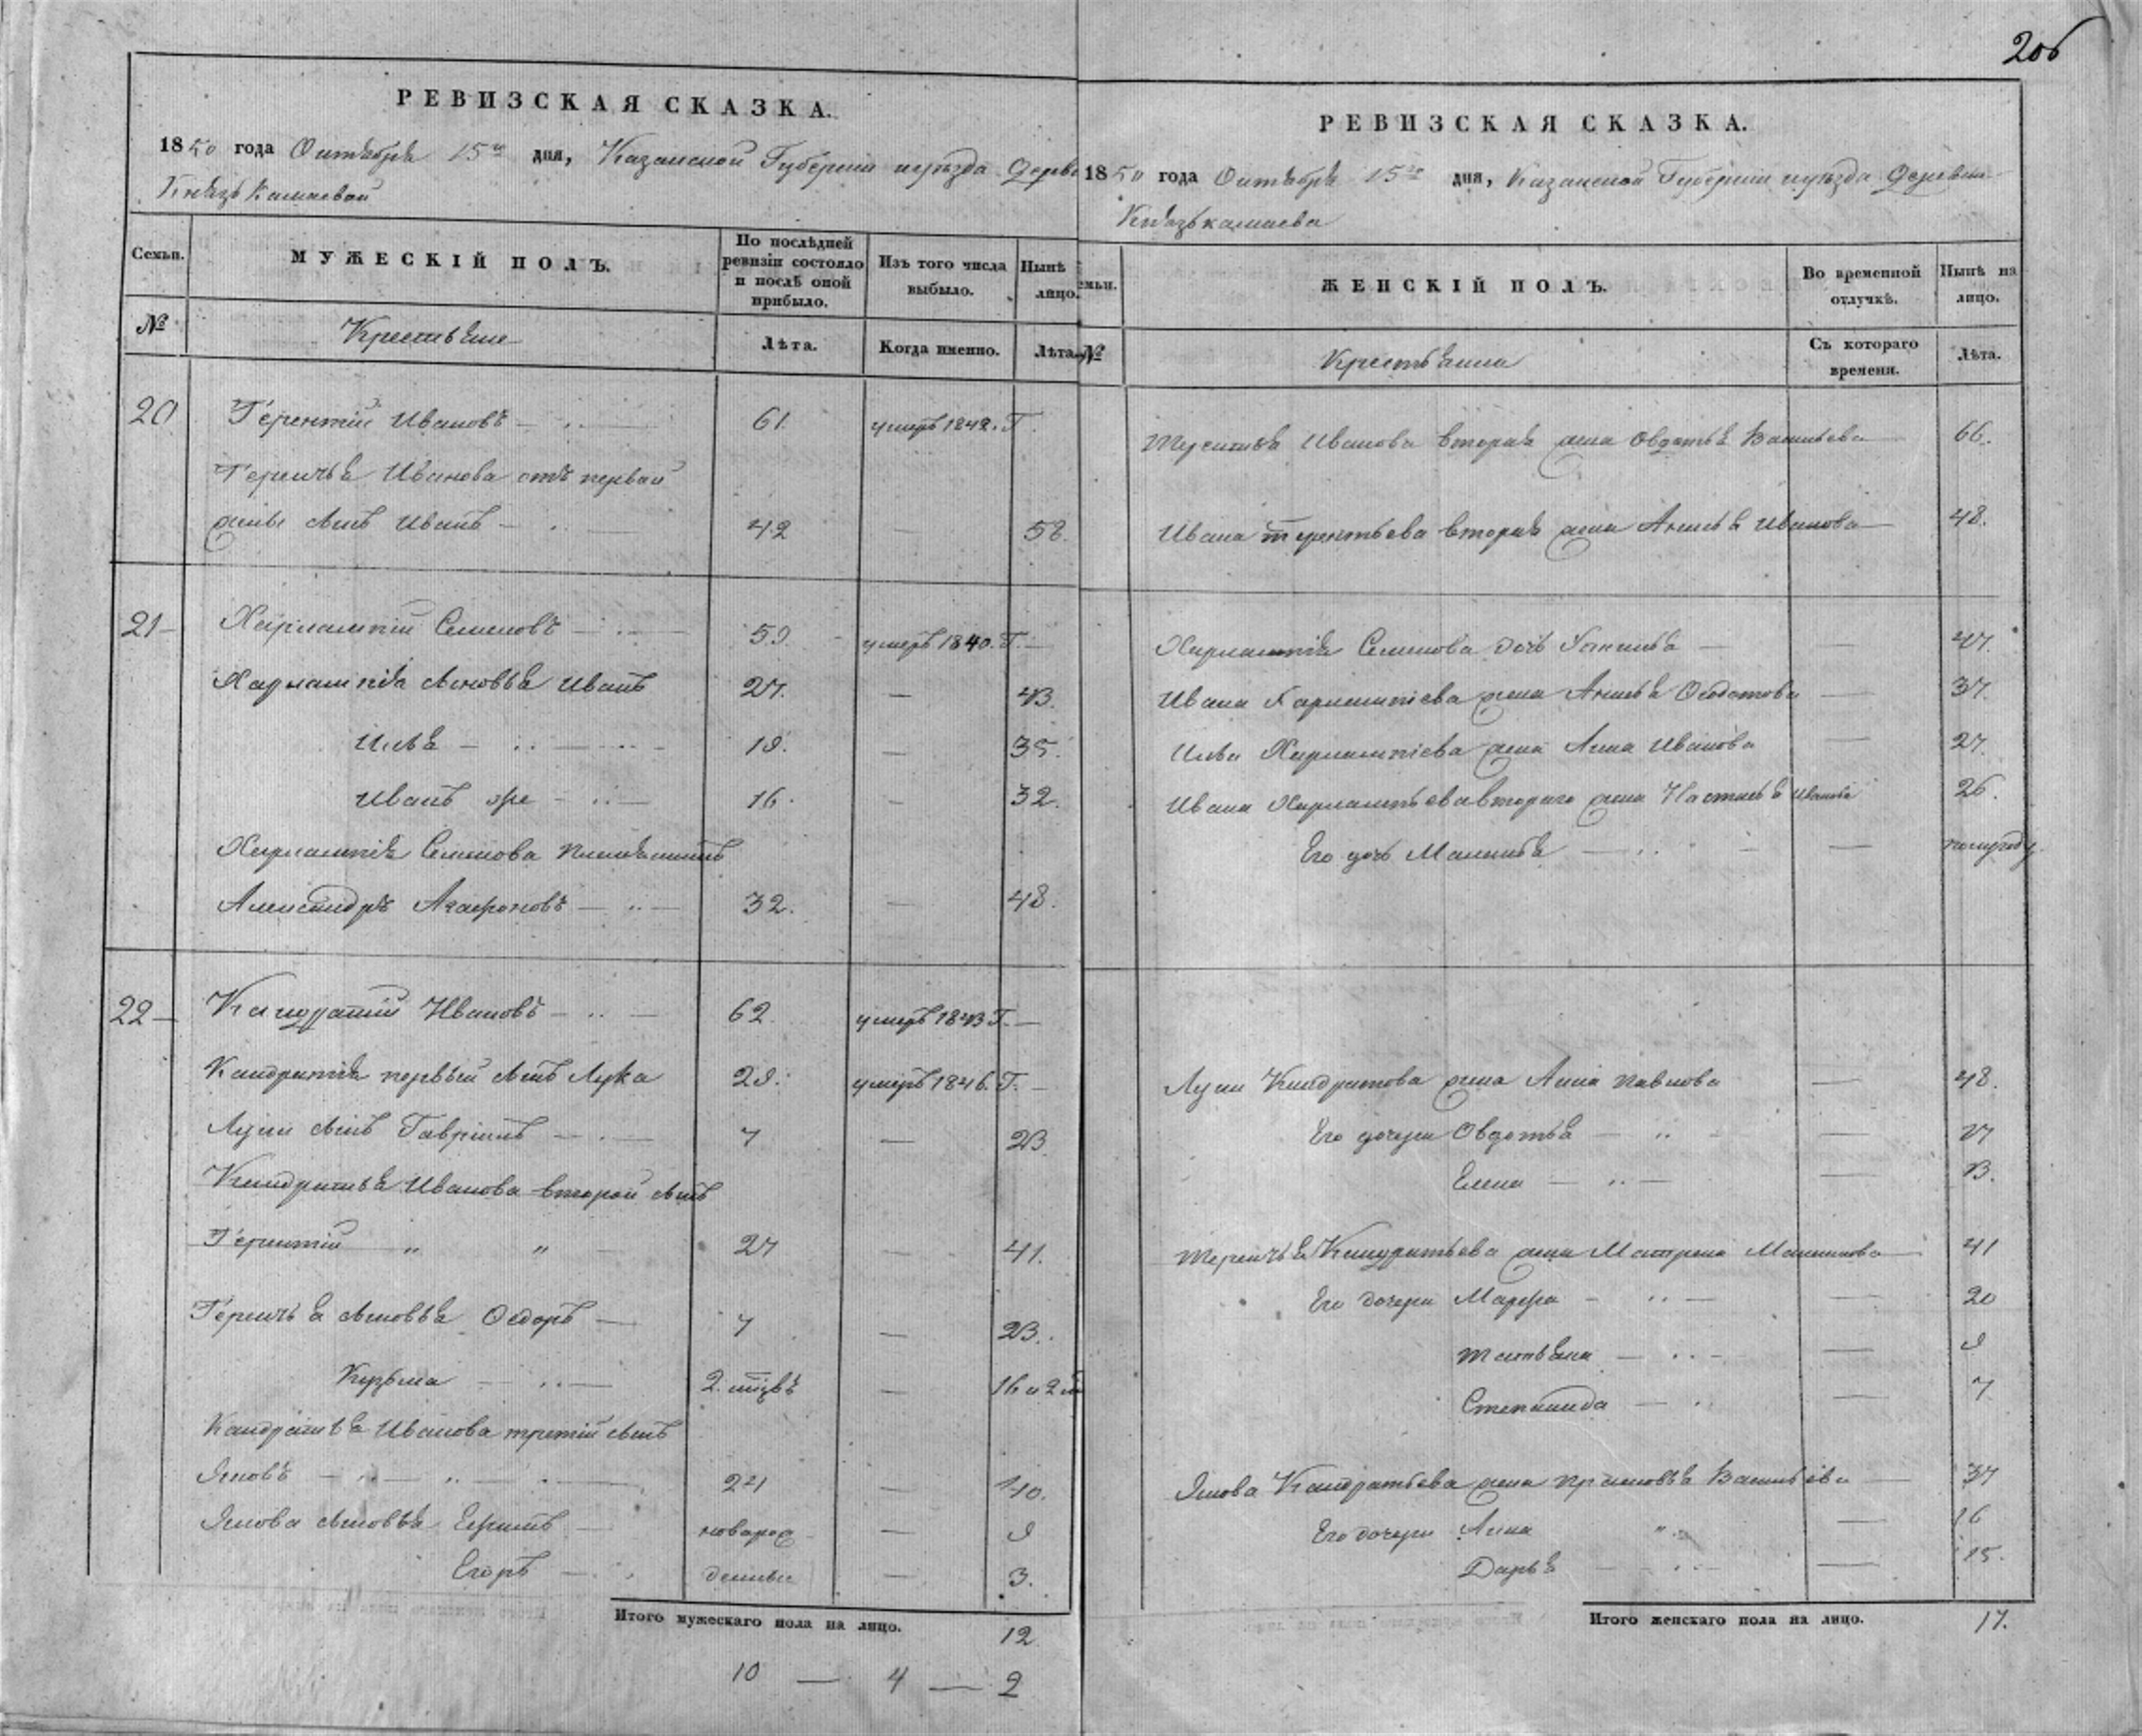 206
РЕВИЗСКАЯ СКАЗКА.
1850 года Октября 15го дня, Казанской Губернии и уѣзда Дерев
Князь Камаевой
Семьи.
МУЖЕСКІЙ ПОЛЪ.
По послѣдней ревизіи состояло и послѣ оной прибыло.
Изъ того числа выбыло.
Нынѣ лицо.
№
Крестьяне
Лѣта.
Когда именно.
Лѣта.
20 Терентій Ивановъ 61. умеръ 1848. Г.
Терентья Иванова отъ первой
жены сынъ Иванъ 42 — 58.
21 Харлампій Семеновъ 59. умеръ 1840. Г.
Харлампія сыновья Иванъ 27. — 43.
Илья 19. — 35.
Иванъ же 16. — 32.
Харлампія Семенова племянникъ
Александръ Агафоновъ 32. — 48.
22 Кандратій Ивановъ 62. умеръ 1843 Г.
Кандратія первый сынъ Лука 29. умеръ 1846. Г.
Луки сынъ Гаврилъ 7 — 23.
Кандратья Иванова второй сынъ
Терентій " " 27 — 41.
Терентья сыновья Ѳедоръ 7 — 23.
Кузьма 2. — 16 и 2
Кандратья Иванова третій сынъ
Яковъ 24 — 40.
Якова сыновья новорож — 9
Егоръ денные — 3.
Итого мужескаго пола на лицо. 12
10 — 4 — 2
РЕВИЗСКАЯ СКАЗКА.
1850 года Октября 15го дня, Казанской Губерніи и уѣзда Деревни
Князькамаева
емьи.
ЖЕНСКІЙ ПОЛЪ.
Во временной отлучкѣ.
Нынѣ на лицо.
№
Крестьянки
Съ котораго времени.
Лѣта.
Терентья Иванова вторая жена Овдотья Васильева 66.
Ивана Терентьева вторая жена Анисья Иванова 48.
Харлампія Семенова дочь Устинья — 47.
Ивана Харлампіева жена Анисья Ѳедотова — 37.
Ильи Харлампіева жена Анна Иванова — 27.
Ивана Харлампьева втораго жена Настасья Иванова 26.
Его дочь — полугоду.
Луки Кандратова жена Анна Павлова — 48.
Его дочери Овдотья — 17
Елена — 13.
Терентья Кандратьева жена Матрена Максимова 41
Его дочери Марфа — 20
Татьяна — 9
Степанида — 7
Якова Кандратьева жена Прасковья Васильева 37
Его дочери Анна — 16
Дарья — 15.
Итого женскаго пола на лицо. 17.